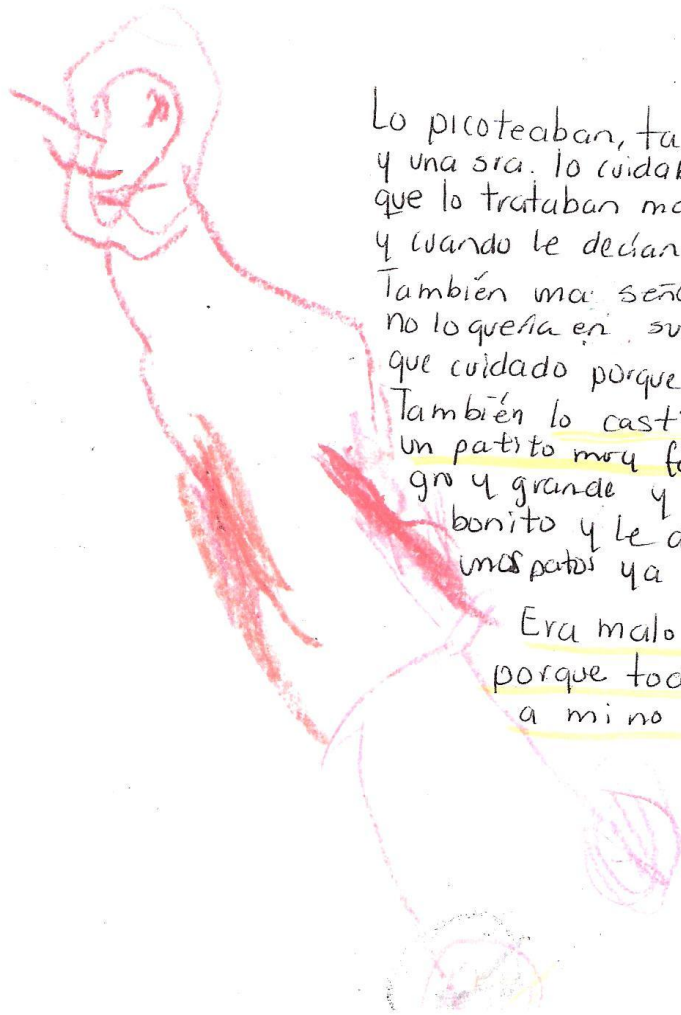 Lo picoteaban, ta
y una sra. lo cuidab
que lo trataban ma
y cuando le decían
También una seño
no lo quería en su
que cuidado porque
También lo cast
un patito muy fe
gro y grande y
bonito y le d
unos patos ya
Era malo
porque tod
a mi no